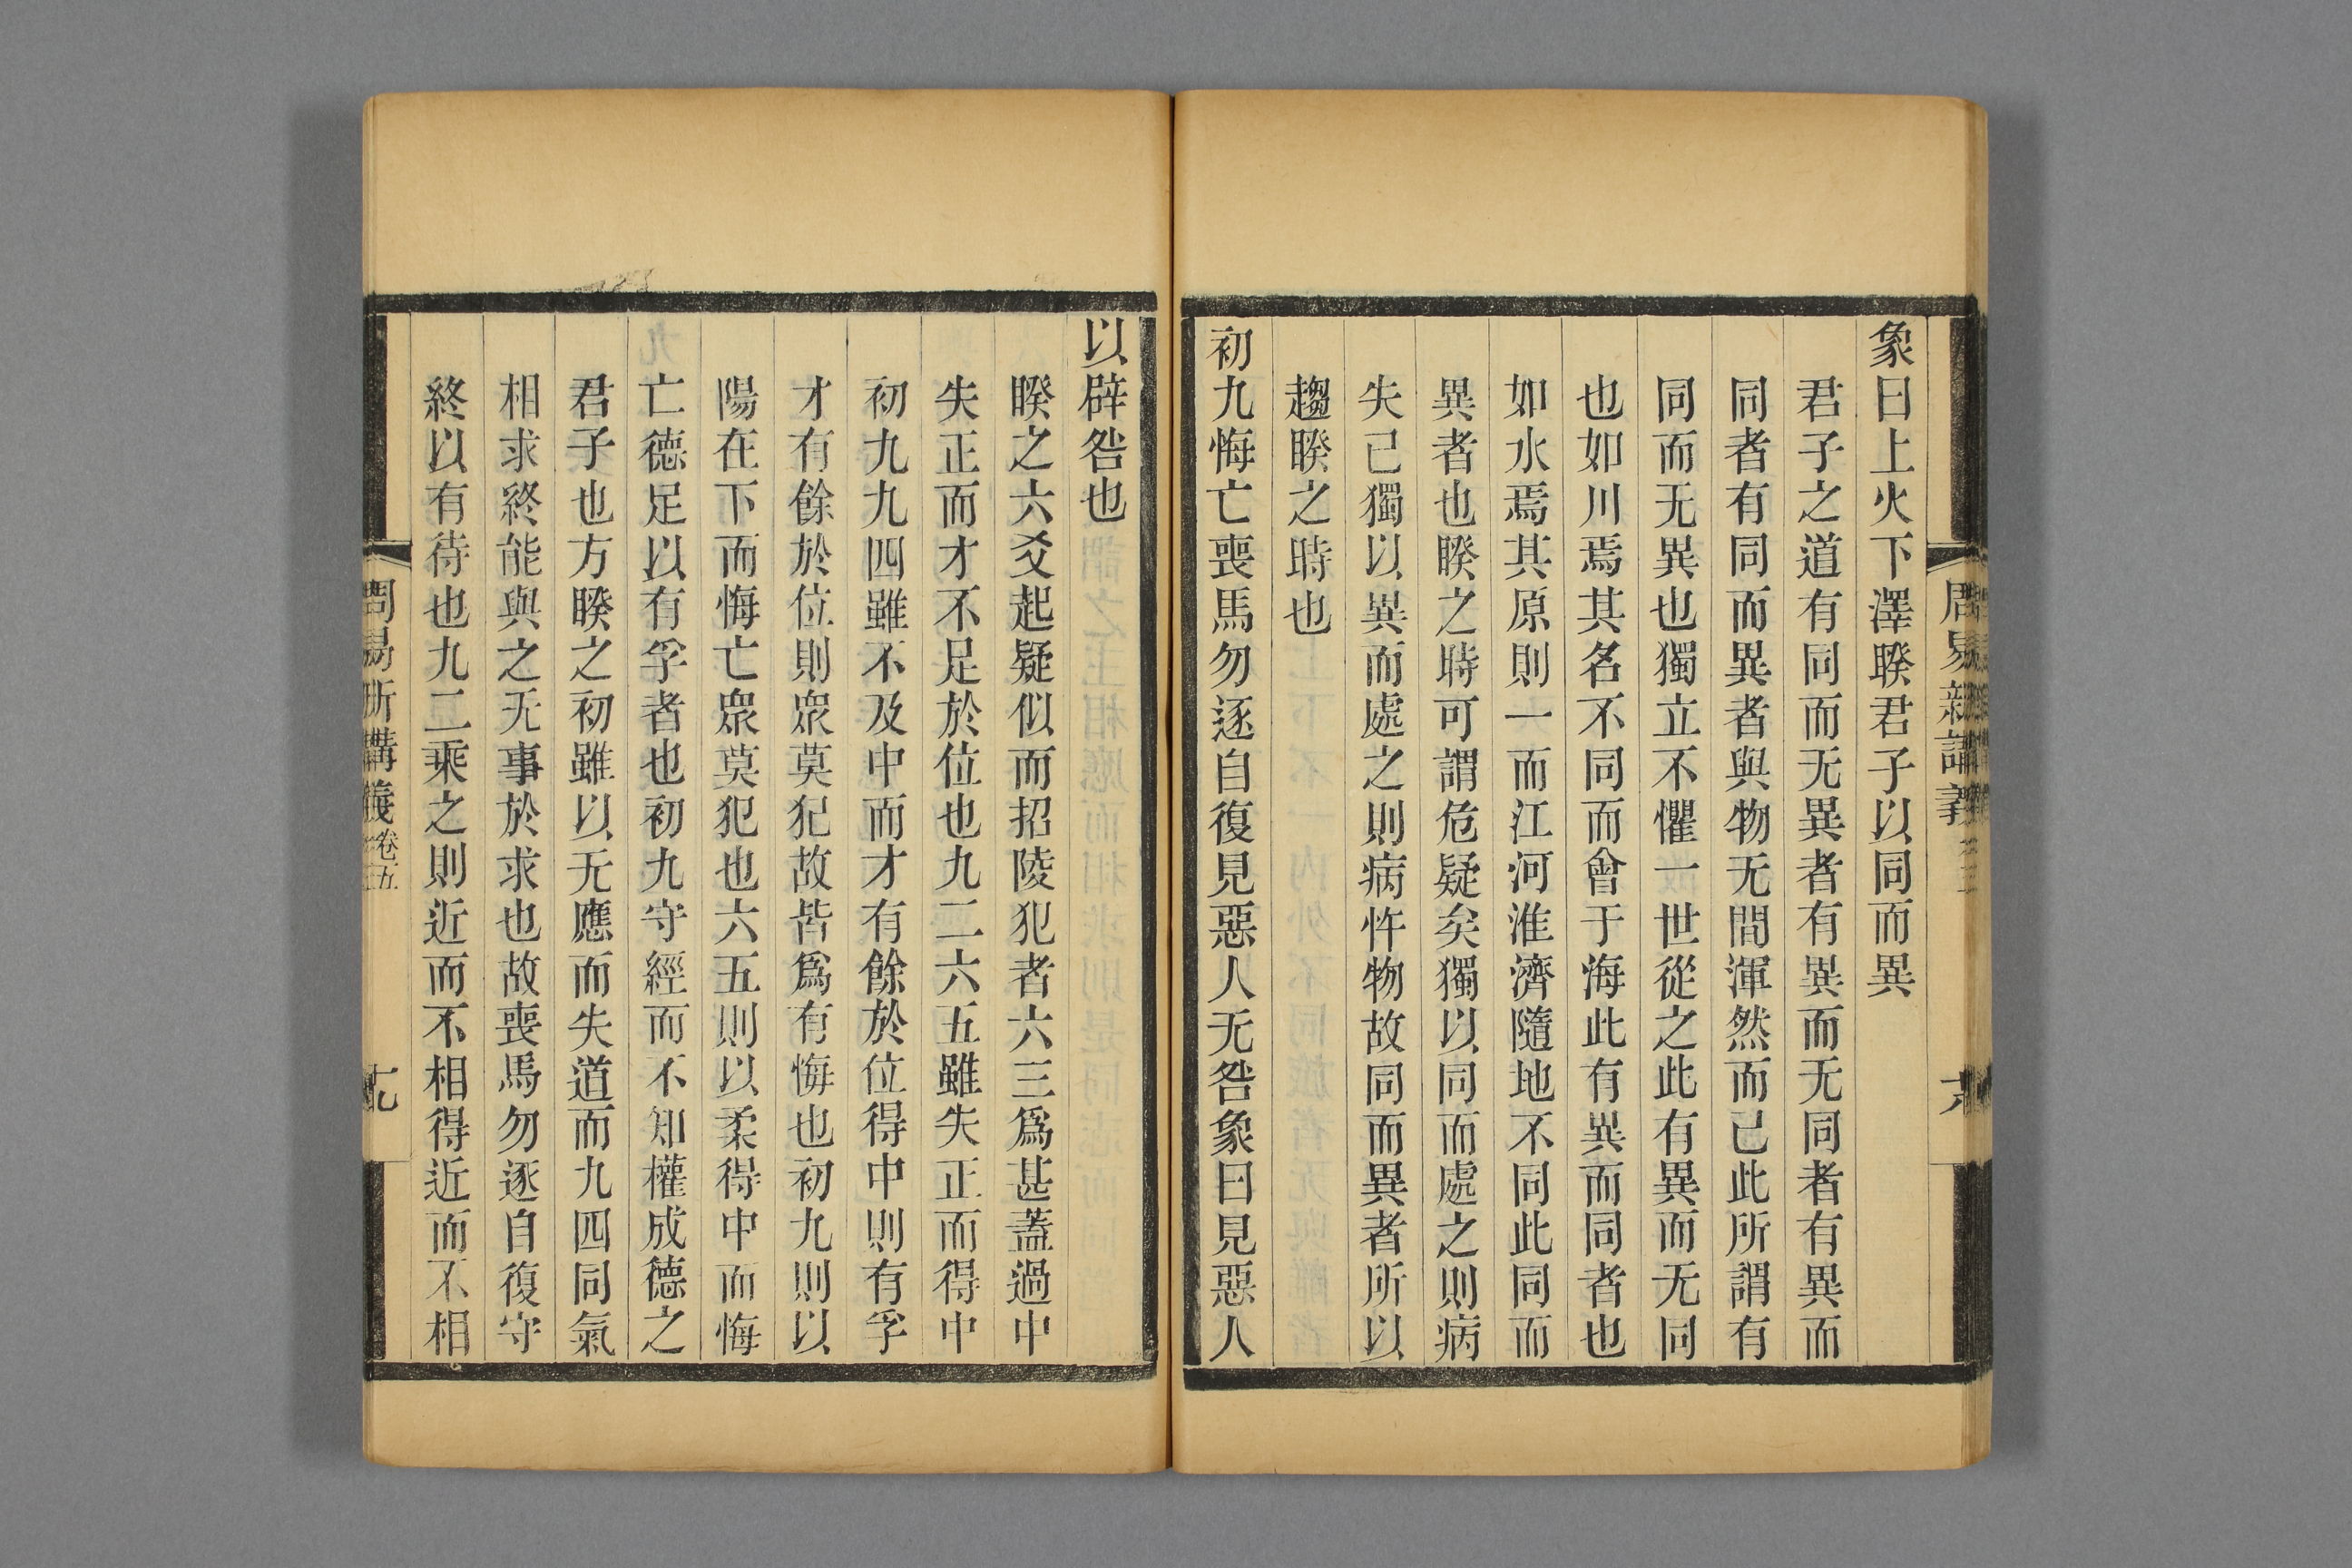 象曰上火下澤睽君子以同而異
君子之道有同而无異者有異而无同者有異而
同者有同而異者與物无間渾然而已此所謂有
同而无異也獨立不懼一世從之此有異而无同
也如川焉其名不同而會于海此有異而同者也
如水焉其原則一而江河淮濟隨地不同此同而
異者也睽之時可謂危疑矣獨以同而處之則病
失己獨以異而處之則病忤物故同而異者所以
趨睽之時也
初九悔亡喪馬勿逐自復見惡人无咎象曰見惡人
以辟咎也
睽之六爻起疑似而招陵犯者六三爲甚蓋過中
失正而才不足於位也九二六五雖失正而得中
初九九四雖不及中而才有餘於位得中則有孚
才有餘於位則衆莫犯故皆爲有悔也初九則以
陽在下而悔亡衆莫犯也六五則以柔得中而悔
亡德足以有孚者也初九守經而不知權成德之
君子也方睽之初雖以无應而失道而九四同氣
相求終能與之无事於求也故喪馬勿逐自復守
終以有待也九二乘之則近而不相得近而不相
周易新講義 卷五 十九